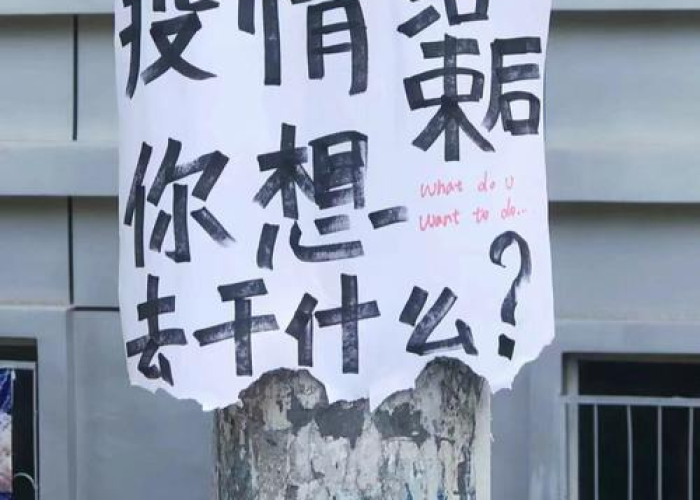 疫情结
束后
你想-
What do u
want to do..
去干什么?